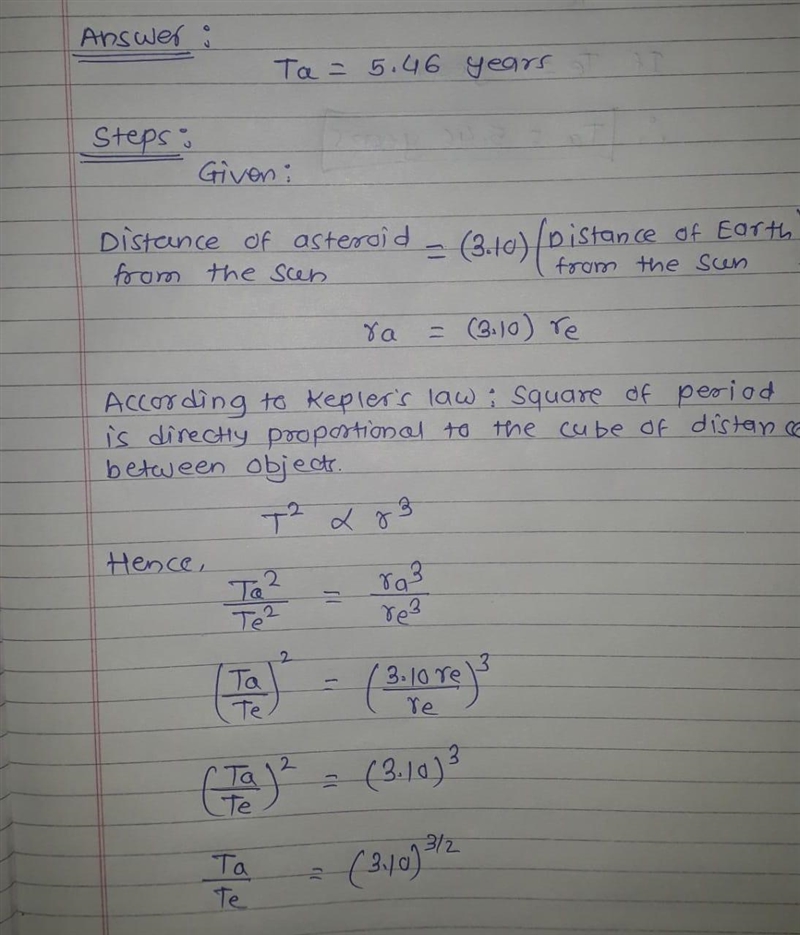 Answer:
Ta = 5.46 years
Steps:
Given:
Distance of asteroid from the sun = (3.10) (Distance of Earth from the sun
ra = (3.10) re
According to Kepler's law: Square of period
is directly proportional to the cube of distance
between objects.
T² ∝ r³
Hence,
Ta²/Te² = ra³/re³
(Ta/Te)² = (3.10 re/re)³
(Ta/Te)² = (3.10)³
Ta/Te = (3.10)^3/2